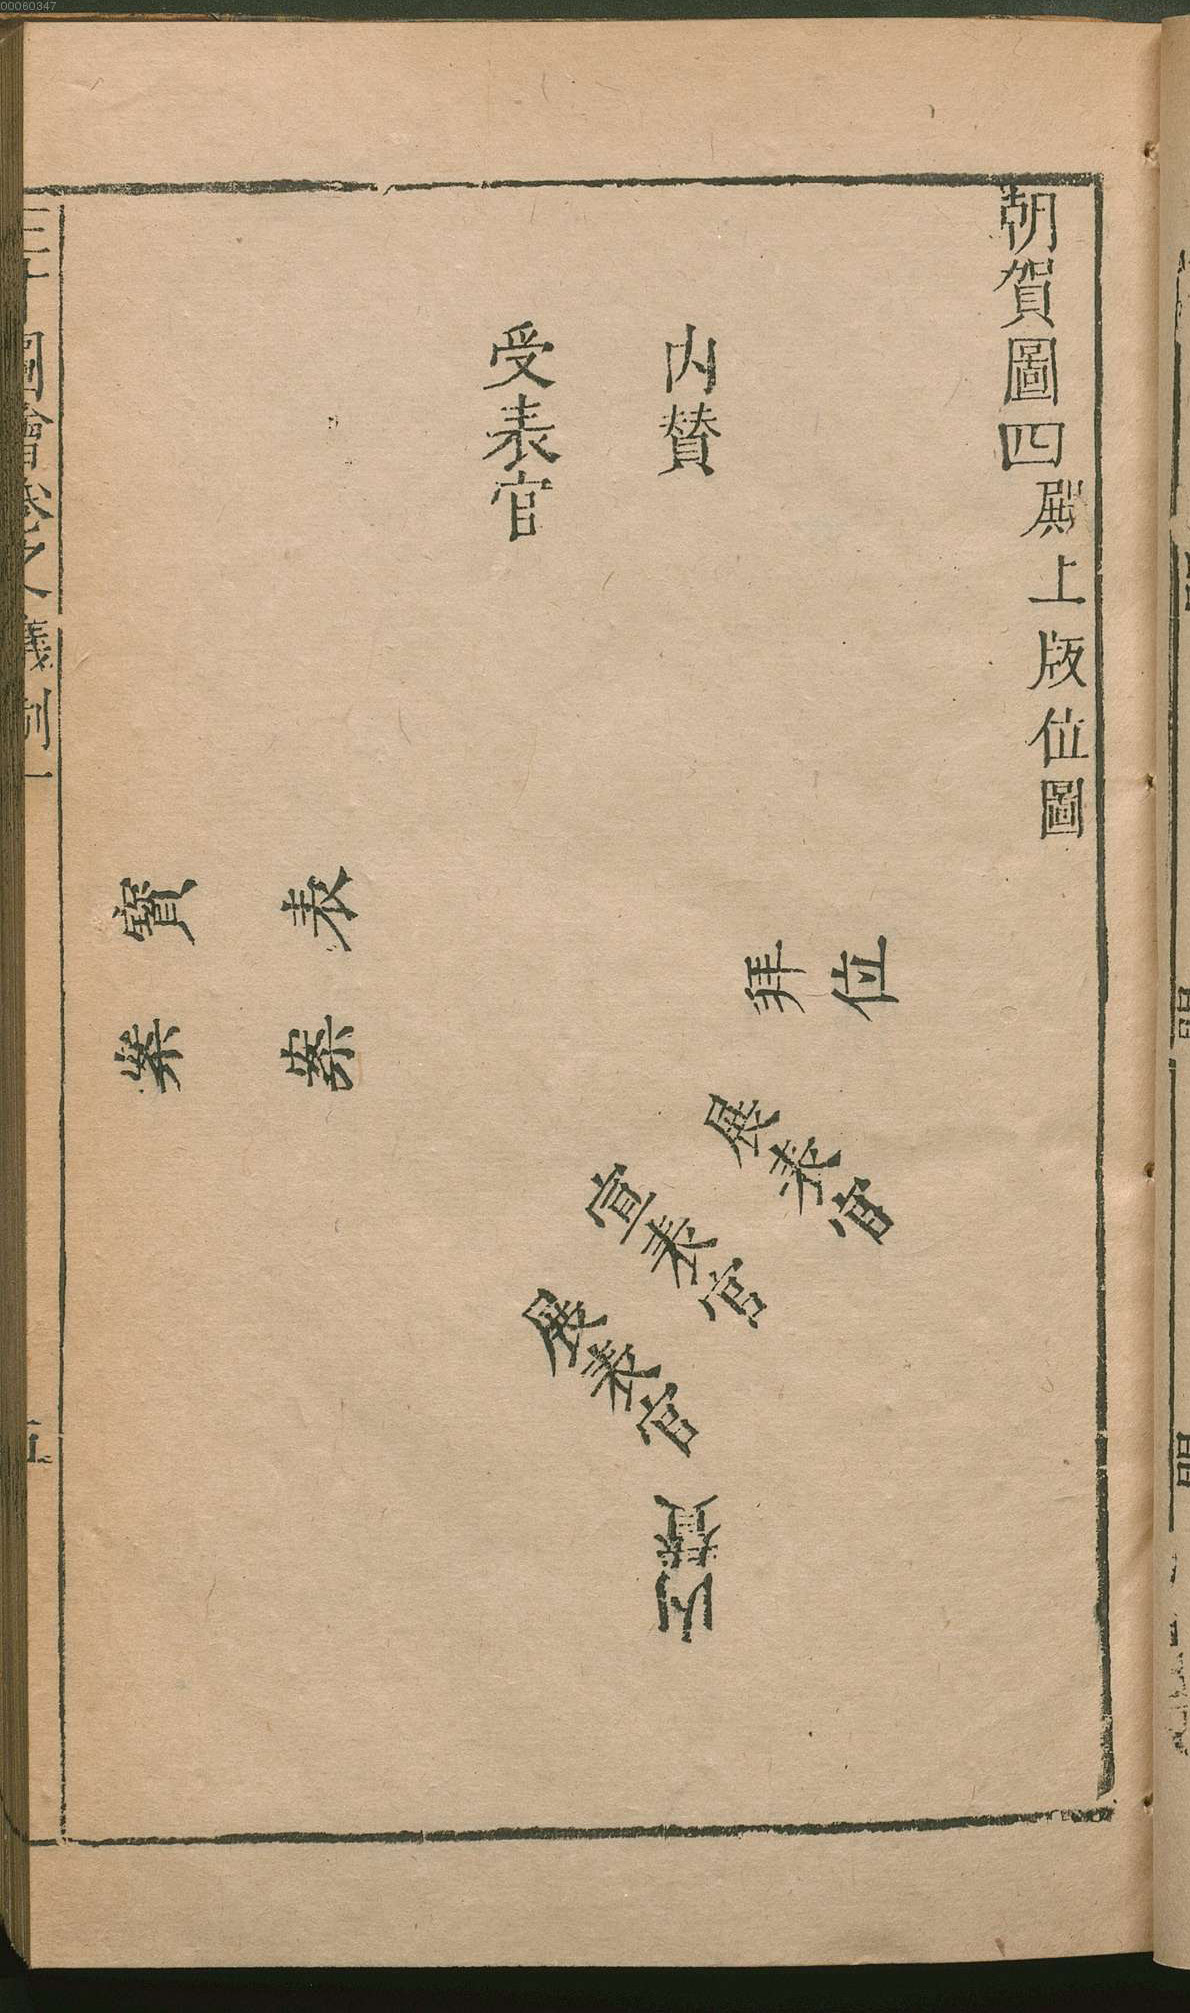 00060347
朝賀圖四殿上版位圖
内贊
受表官
拜位
展表官
宣表官
展表官
内贊
表案
寶案
三才圖會卷之八儀制一
五